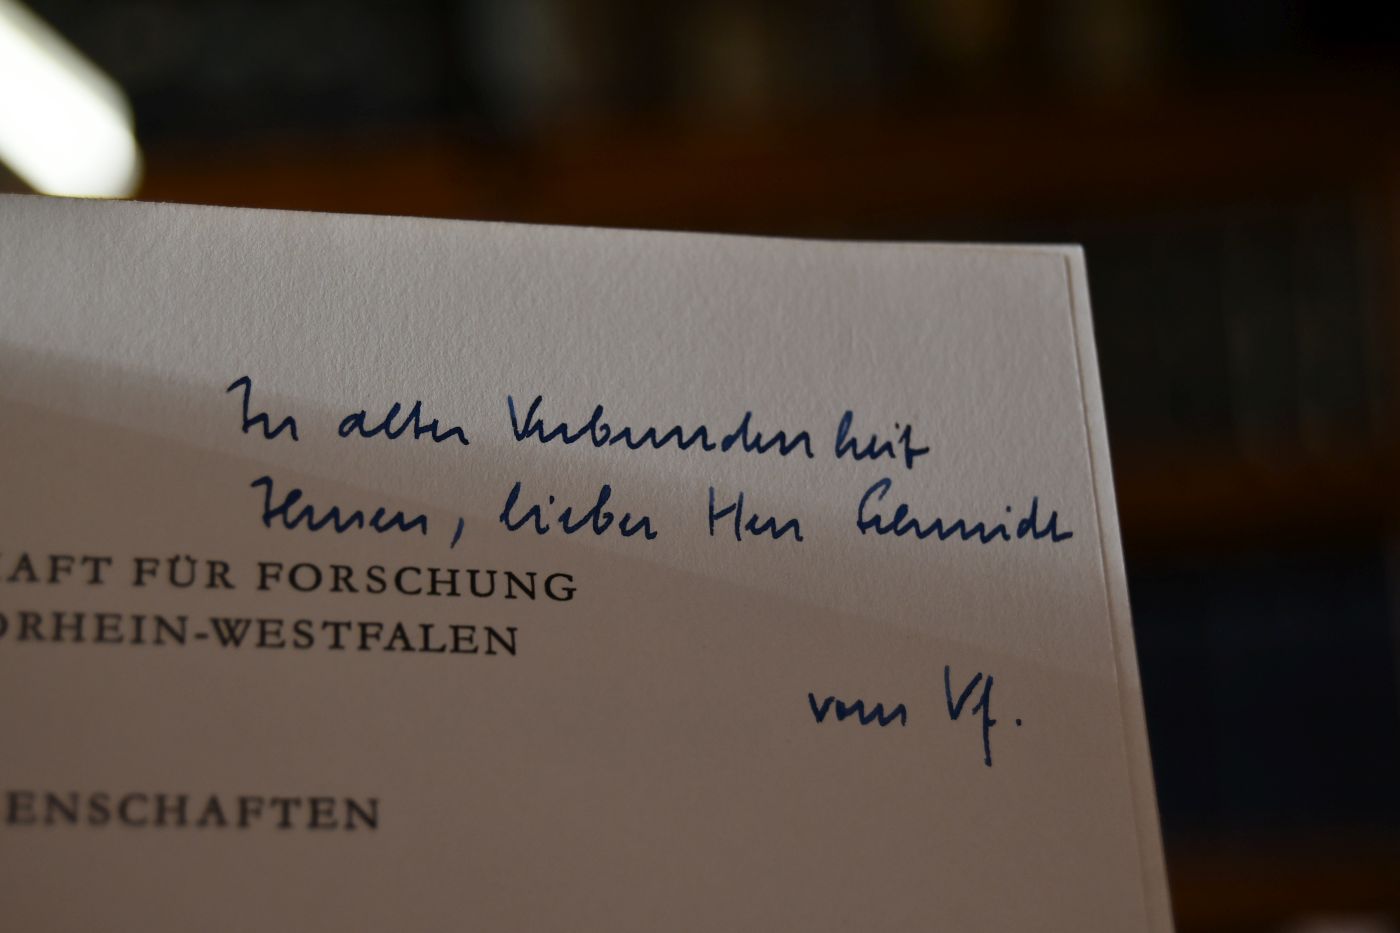 In alter Verbundenheit
Ihnen, lieber Herr Schmidt
HAFT FÜR FORSCHUNG
ORHEIN-WESTFALEN
vom Vf.
ENSCHAFTEN